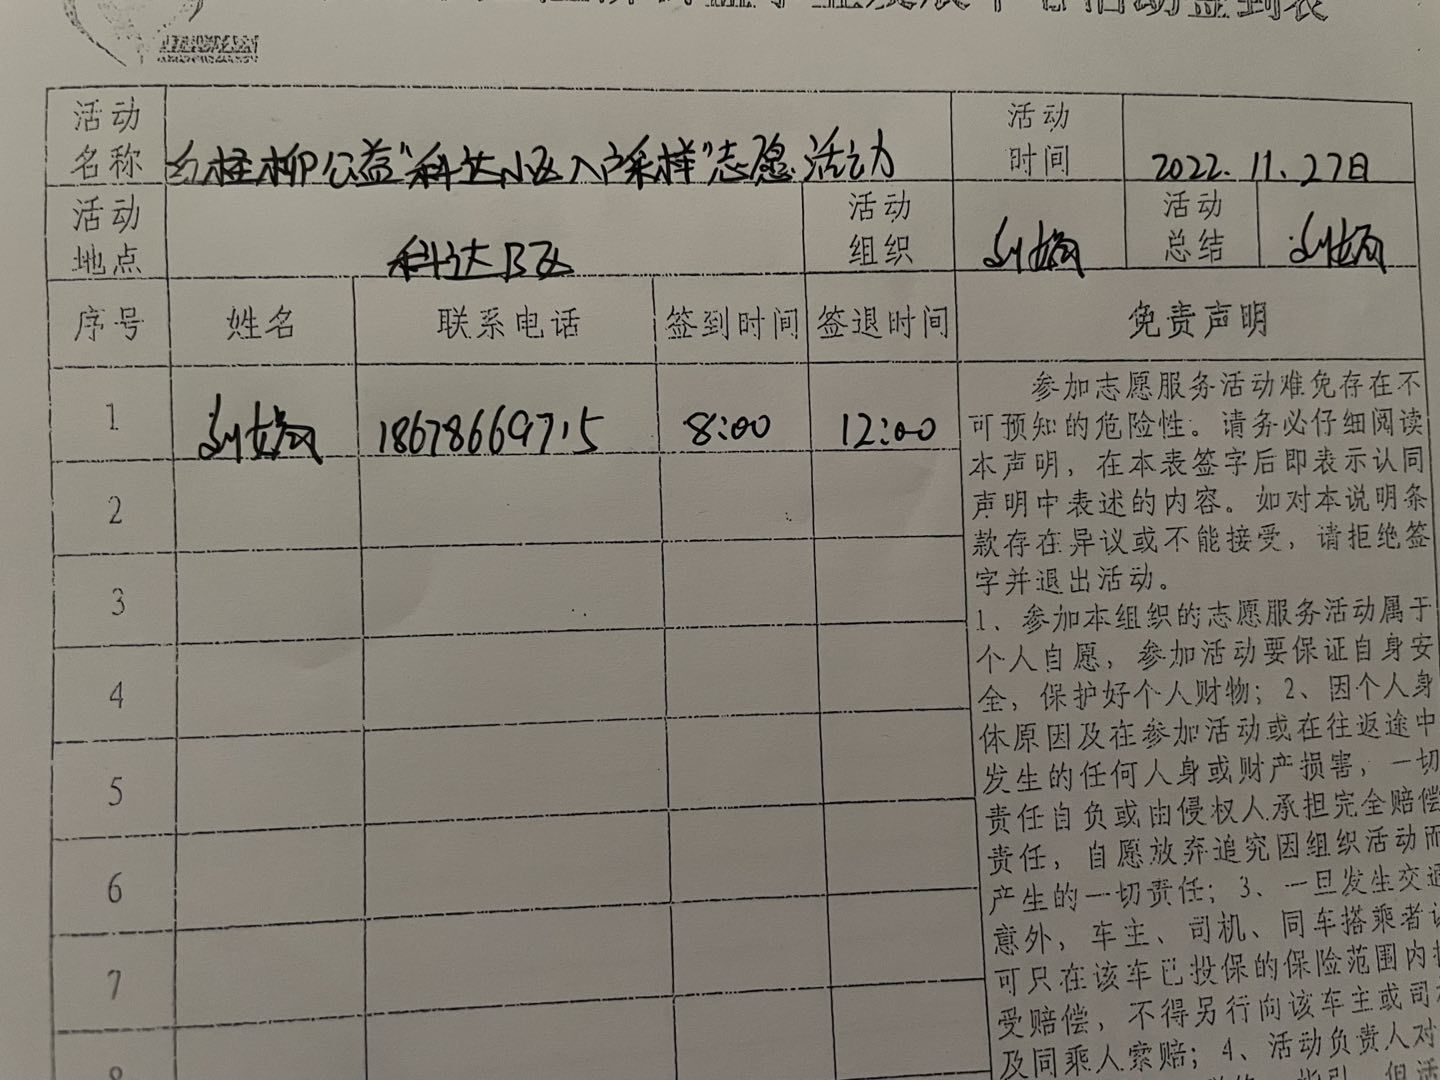 活动签到表
活动名称
红柽柳公益"科达小区入户采样"志愿活动
活动时间
2022.11.27日
活动地点
科达B区
活动组织
活动总结
序号 姓名 联系电话 签到时间 签退时间 免责声明
1 18678669715 8:00 12:00
2
3
4
5
6
7
8
参加志愿服务活动难免存在不
可预知的危险性。请务必仔细阅读
本声明，在本表签字后即表示认同
声明中表述的内容。如对本说明条
款存在异议或不能接受，请拒绝签
字并退出活动。
1、参加本组织的志愿服务活动属于
个人自愿，参加活动要保证自身安
全，保护好个人财物；2、因个人身
体原因及在参加活动或在往返途中
发生的任何人身或财产损害，一切
责任自负或由侵权人承担完全赔偿
责任，自愿放弃追究因组织活动而
产生的一切责任；3、一旦发生交通
意外，车主、司机、同车搭乘者
可只在该车已投保的保险范围内
受赔偿，不得另行向该车主或司
及同乘人索赔；4、活动负责人对